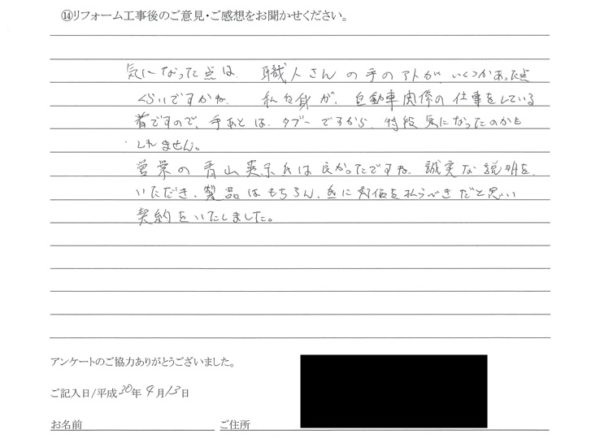 ⑭リフォーム工事後のご意見・ご感想をお聞かせください。
気になった点は 職人さんの手のアトが、いくつかあった点
くらいですかね。 私自身が、自動車関係の仕事をしている
者ですので、手あとは、タブーですから、特段気になったのかも
しれません。
営業の青山 氏は良かったですね。誠実な説明を、
いただき、製品はもちろん、氏に対価を払うべきだと思い
契約をいたしました。
アンケートのご協力ありがとうございました。
ご記入日/平成30年4月13日
お名前 ご住所